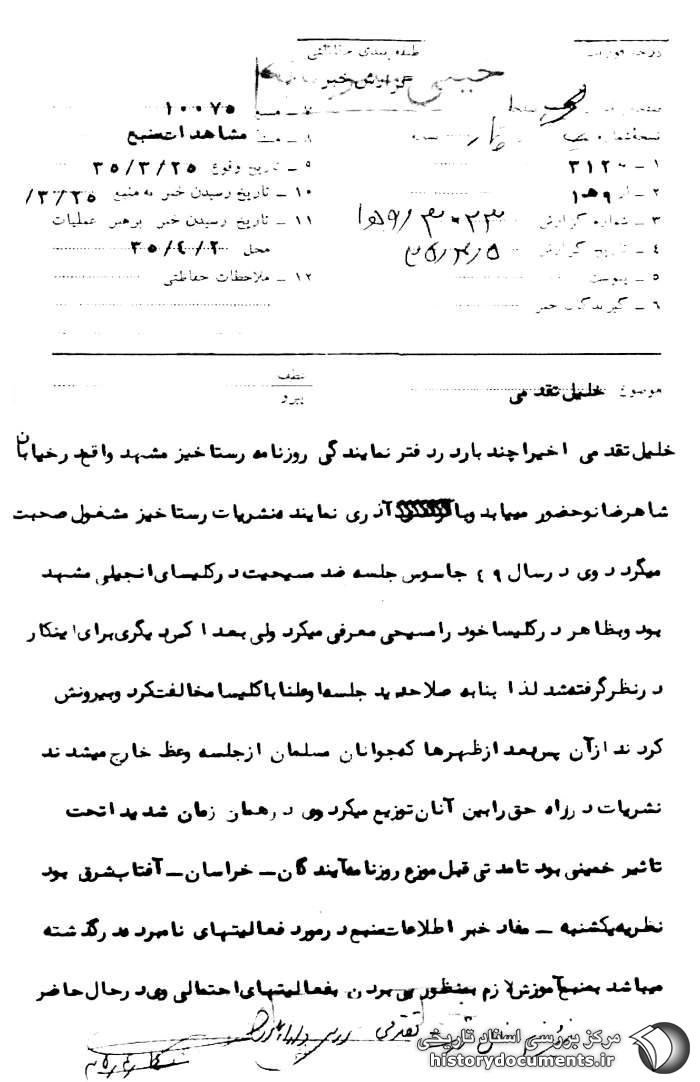 درجه فوریت
طبقه بندی حفاظتی
گزارش خبر
نسخه شماره
۷ ـ ۱۰۰۷۵
۸ ـ مشاهدات منبع
۱ ـ به ۳۱۲
۹ ـ تاریخ وقوع ۳۵/۳/۲۵
۲ ـ از ۹ ه‍ ۱
۱۰ ـ تاریخ رسیدن خبر به منبع ۳/۲۵/
۳ ـ شماره گزارش
۱۱ ـ تاریخ رسیدن خبر برهبر عملیات
۴ ـ تاریخ گزارش ۳۵/۴/۵
محل ۳۵/۴/۲
۵ ـ پیوست
۱۲ ـ ملاحظات حفاظتی
۶ ـ گیرندگان خبر
موضوع خلیل تقدمی
عطف
پیرو
خلیل تقدمی اخیرا چند بار در دفتر نمایندگی روزنامه رستاخیز مشهد واقع در خیابان
شاهرضا نو حضور مییابد وبا آذری نماینده نشریات رستاخیز مشغول صحبت
میگردد وی در سال ۴۹ جاسوس جلسه ضد مسیحیت در کلیسای انجیلی مشهد
بود وبظاهر در کلیسا خود را مسیحی معرفی میکرد ولی بعدا کس دیگری برای اینکار
در نظر گرفته شد لذا بنا به صلاحدید جلسه او علنا با کلیسا مخالفت کرد وبیرونش
کردند از آن پس بعد از ظهرها که جوانان مسلمان از جلسه وعظ خارج میشدند
نشریات در راه حق را بین آنان توزیع میکرد وی در همان زمان شدیدا تحت
تاثیر خمینی بود تا مدتی قبل موزع روزنامه آیندگان ـ خراسان ـ آفتاب شرق بود
نظریه یکشنبه ـ مفاد خبر اطلاعات منبع در مورد فعالیتهای نامبرده در گذشته
میباشد بمنبع آموزش لازم بمنظور پی بردن بفعالیتهای احتمالی وی در حال حاضر
تقدمی
مرکز بررسی اسناد تاریخی
historydocuments.ir